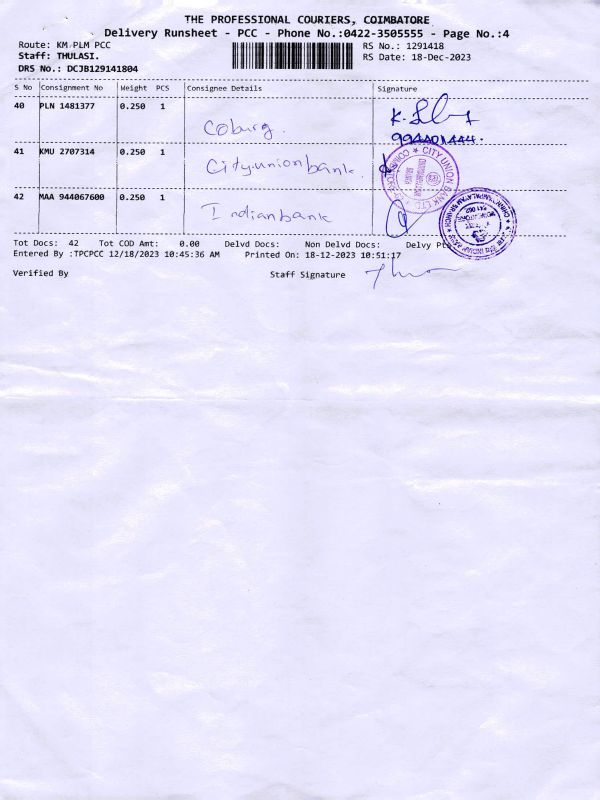 THE PROFESSIONAL COURIERS, COIMBATORE
Delivery Runsheet - PCC - Phone No.:0422-3505555 - Page No.:4
Route: KM PLM PCC RS No.: 1291418
Staff: THULASI. RS Date: 18-Dec-2023
DRS No.: DCJB129141804
S No Consignment No Weight PCS Consignee Details Signature
40 PLN 1481377 0.250 1
Coburg.
41 KMU 2707314 0.250 1
Cityunionbank.
CITY UNION BANK LTD.
42 MAA 944067600 0.250 1
Indianbank
Tot Docs: 42 Tot COD Amt: 0.00 Delvd Docs: Non Delvd Docs: Delvy Pt
Entered By :TPCPCC 12/18/2023 10:45:36 AM Printed On: 18-12-2023 10:51:17
Verified By Staff Signature